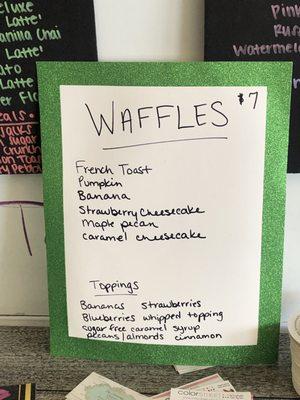 Deluxe
Latte'
Vanilla Chai
Latte'
Pink
Watermelon
WAFFLES $7
French Toast
Pumpkin
Banana
Strawberry Cheesecake
Maple pecan
Caramel cheesecake
Toppings
Bananas strawberries
Blueberries whipped topping
sugar free caramel syrup
pecans/almonds cinnamon